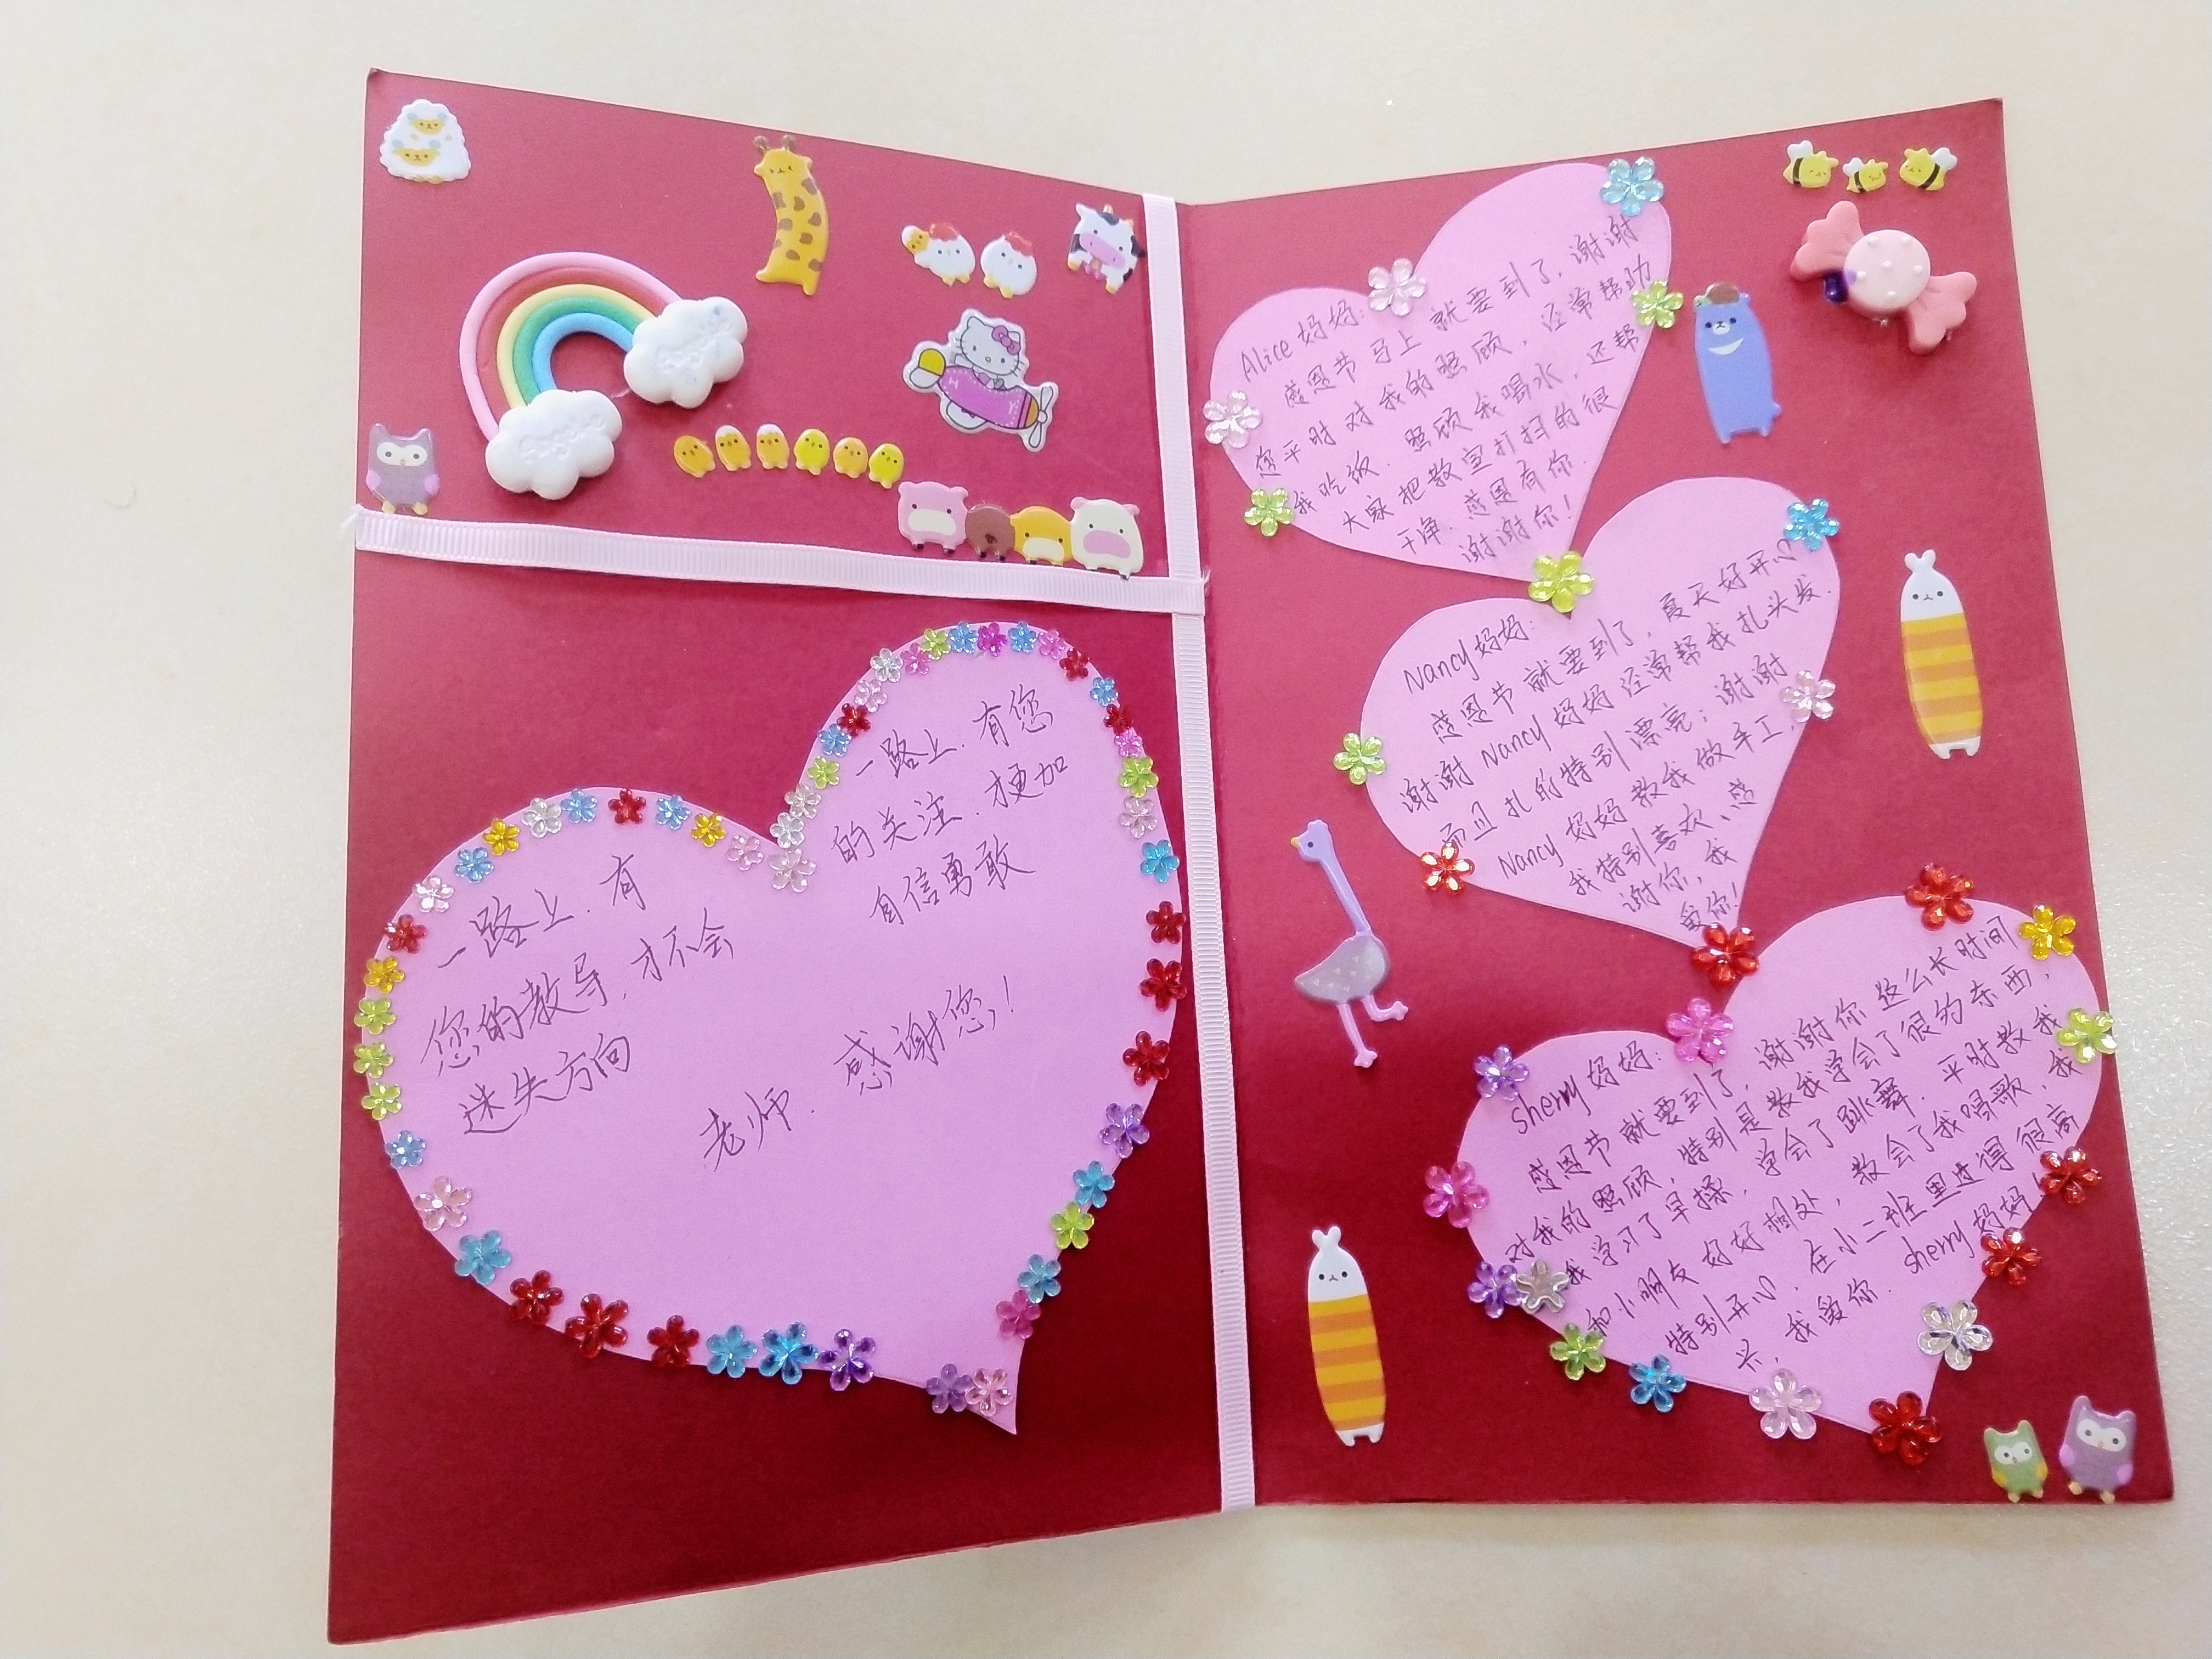 一路上.有
您的教导,才不会
迷失方向
一路上.有您
的关注.才更加
自信勇敢
老师.感谢您!
Alice妈妈:
感恩节马上就要到了,谢谢
您平时对我的照顾,经常帮助
我吃饭.照顾我喝水,还帮
大家把教室打扫的很
干净.感恩有你.
谢谢你!
Nancy妈妈:
感恩节就要到了,夏天好开心
谢谢Nancy妈妈经常帮我扎头发.
而且扎的特别漂亮;谢谢
Nancy妈妈教我做手工,
我特别喜欢,感
谢你,我
爱你!
Sherry妈妈:
感恩节就要到了,谢谢你这么长时间
对我的照顾,特别是教我学会了很多东西,
我学习了早操,学会了跳舞.平时教我
和小朋友好好相处,教会了我唱歌,我
特别开心.在小二班里过得很高
兴,我爱你.Sherry妈妈!